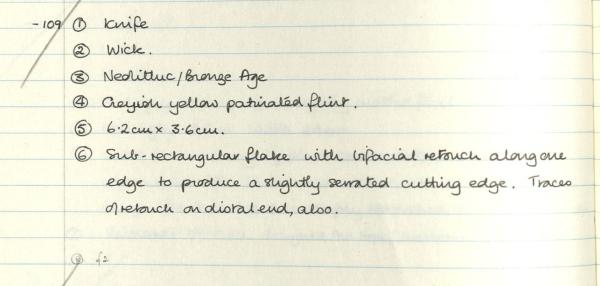 -109 ① Knife
② Wick.
③ Neolithic/Bronze Age
④ Greyish yellow patinated flint.
⑤ 6.2cm x 3.6cm.
⑥ Sub-rectangular flake with bifacial retouch along one
edge to produce a slightly serrated cutting edge. Traces
of retouch on distal end, also.
f2